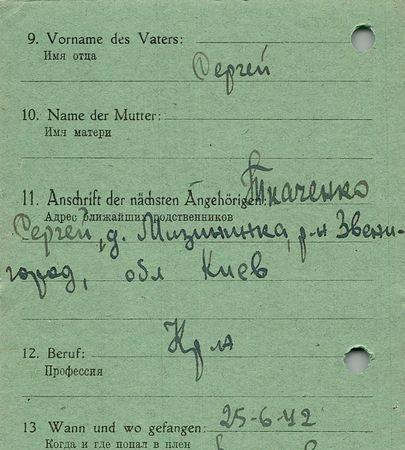 9. Vorname des Vaters:
Имя отца
Сергей
10. Name der Mutter:
Имя матери
11. Anschrift der nächsten Angehörigen: Ткаченко
Адрес ближайших родственников
Сергей, д. р-н Звени-
город, обл Киев
12. Beruf:
Профессия
13 Wann und wo gefangen: 25-6-42
Когда и где попал в плен